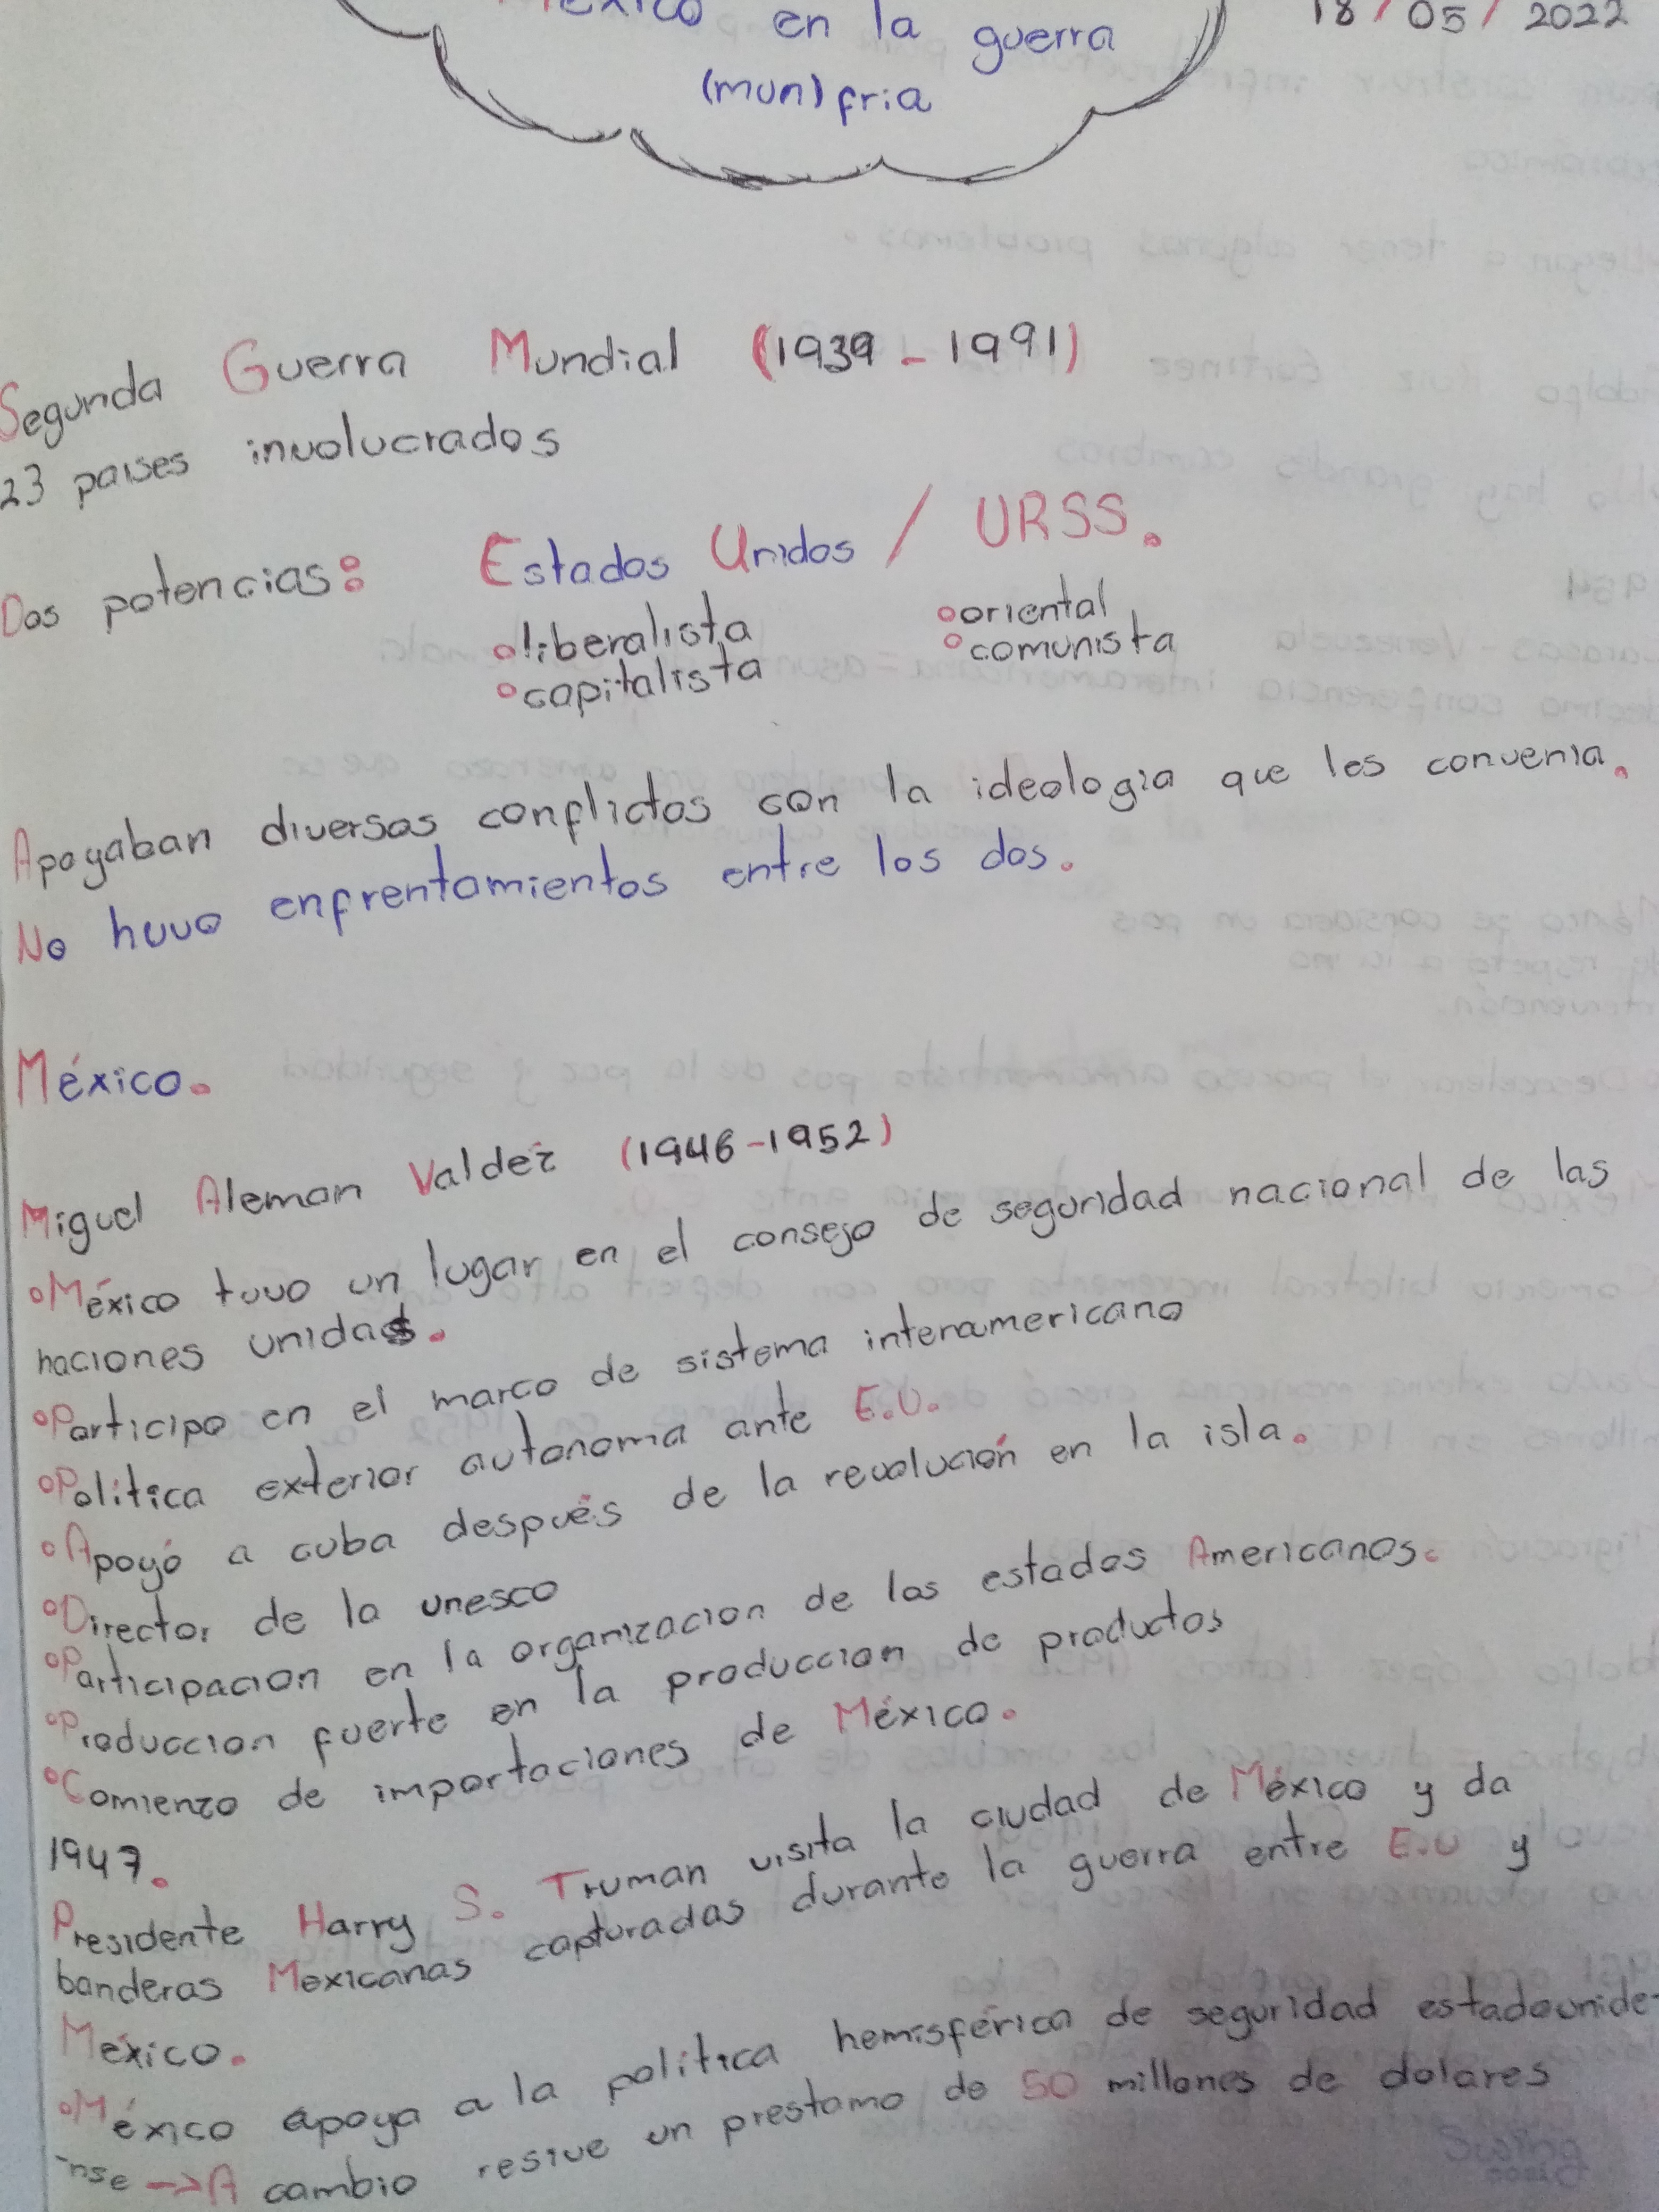 México en la guerra
(mun) fria
18/05/2022
Segunda Guerra Mundial (1939-1991)
23 paises involucrados
Dos potencias: Estados Unidos / URSS.
°liberalista °oriental
°capitalista °comunista
Apoyaban diversos conflictos con la ideologia que les convenia.
No huvo enfrentamientos entre los dos.
México.
Miguel Aleman Valdez (1946-1952)
°México tuvo un lugar en el consejo de seguridad nacional de las
naciones unidas.
°Participo en el marco de sistema interamericano
°Politica exterior autonoma ante E.U.
°Apoyó a cuba después de la revolución en la isla.
°Director de la unesco
°Participacion en la organizacion de los estados Americanos.
°Produccion fuerte en la produccion de productos
°Comienzo de importaciones de México.
1947.
Presidente Harry S. Truman visita la ciudad de México y da
banderas Mexicanas capturadas durante la guerra entre E.U y
México.
°México apoya a la politica hemisférica de seguridad estadounide-
nse -> A cambio resive un prestamo de 50 millones de dolares